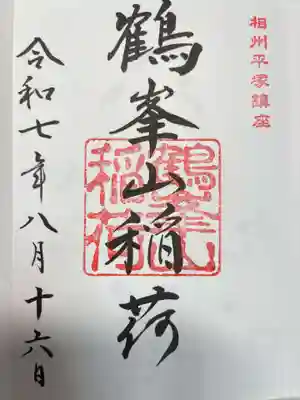 相州平塚鎮座
鶴峯山稲荷
鶴峯山
稲荷
令和七年八月十六日